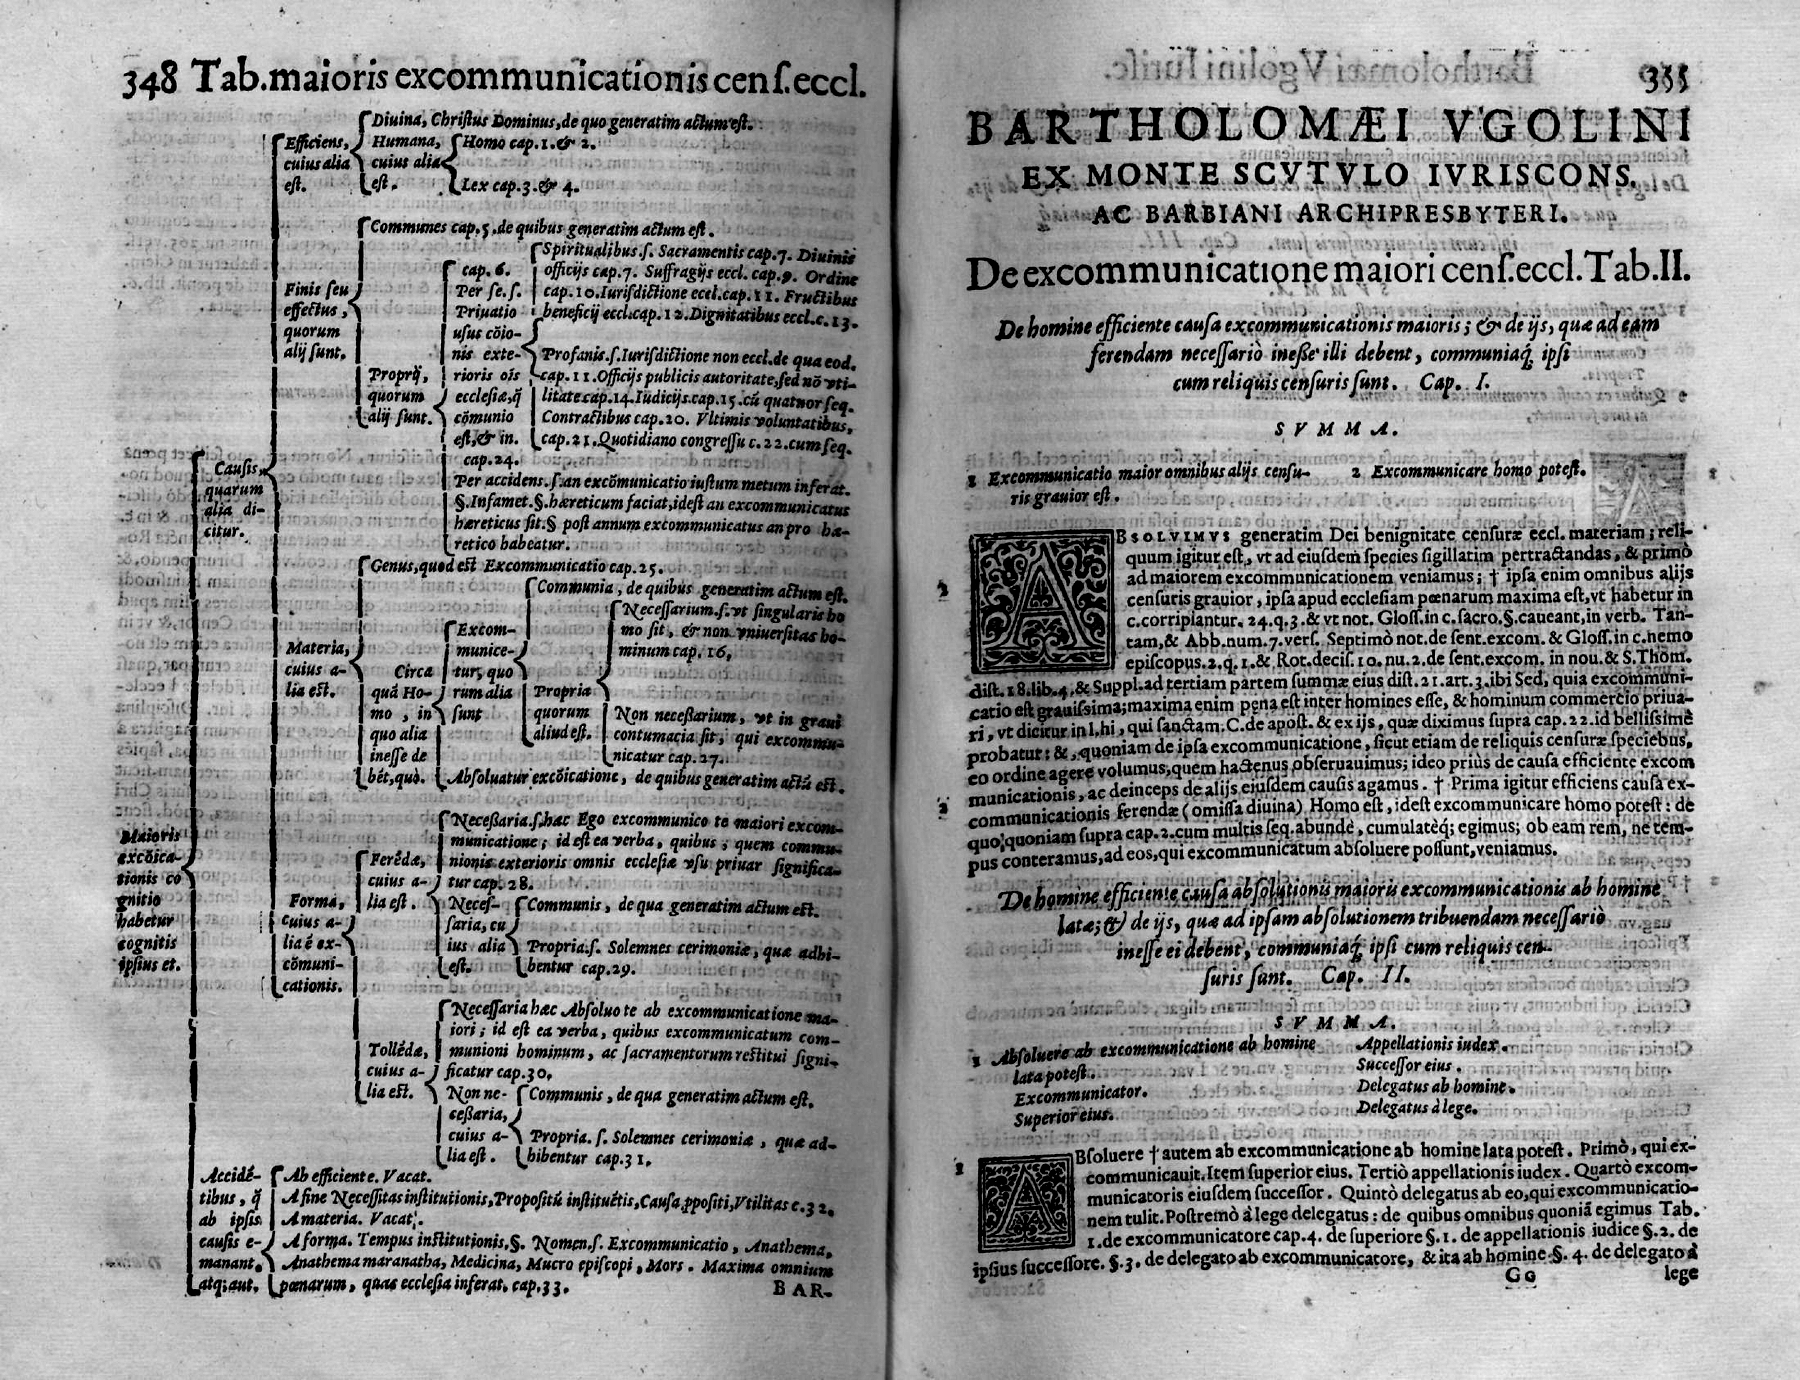 348 Tab. maioris excommunicationis cens. eccl.
Diuina, Christus Dominus, de quo generatim actum est.
Efficiens,
cuius alia
est.
Humana,
cuius alia
est.
Homo cap. 1. & 2.
Lex cap. 3. & 4.
Communes cap. 5. de quibus generatim actum est.
Finis seu
effectus,
quorum
alij sunt.
Proprij,
quorum
alij sunt.
cap. 6.
Per se. s.
Priuatio
usus cōio-
nis exte-
rioris oīs
ecclesiæ, q̄
cōmunio
est, & in.
Spiritualibus. s. Sacramentis cap. 7. Diuinis
officijs cap. 7. Suffragijs eccl. cap. 9. Ordine
cap. 10. Iurisdictione eccl. cap. 11. Fructibus
beneficij eccl. cap. 12. Dignitatibus eccl. c. 13.
Profanis. s. Iurisdictione non eccl. de qua eod.
cap. 11. Officijs publicis autoritate, sed nō vti-
litate cap. 14. Iudicijs. cap. 15. cū quatuor seq.
Contractibus cap. 20. Vltimis voluntatibus,
cap. 21. Quotidiano congressu c. 22. cum seq.
cap. 24.
Per accidens. s. an excōmunicatio iustum metum inferat.
§. Infamet. §. hæreticum faciat, idest an excommunicatus
hæreticus sit. § post annum excommunicatus an pro hæ-
retico habeatur.
Causis,
quarum
alia di-
citur.
Genus, quod est Excommunicatio cap. 25.
Materia,
cuius a-
lia est.
Circa
quā Ho-
mo, in
quo alia
inesse de
bēt, quò.
Excom-
munice-
tur, quo
rum alia
sunt
Communia, de quibus generatim actum est.
Propria
quorum
aliud est.
Necessarium. s. vt singularis ho
mo sit, & non vniuersitas ho-
minum cap. 16,
Non necessarium, vt in graui
contumacia sit, qui excommu-
nicatur cap. 27.
Absoluatur excōicatione, de quibus generatim actū est.
Maioris
excōica-
tionis co
gnitio
habetur
cognitis
ipsius et.
Forma,
cuius a-
lia ē ex-
cōmuni-
cationis.
Ferēdæ,
cuius a-
lia est.
Necessaria. s. hæc Ego excommunico te maiori excom-
municatione; id est ea verba, quibus; quem commu-
nionis exterioris omnis ecclesiæ vsu priuar significa-
tur cap. 28.
Neces-
saria, cu
ius alia
est.
Communis, de qua generatim actum est.
Propria. s. Solemnes cerimoniæ, quæ adhi-
bentur cap. 29.
Tollēdæ,
cuius a-
lia est.
Necessaria hæc Absoluo te ab excommunicatione ma-
iori; id est ea verba, quibus excommunicatum com-
munioni hominum, ac sacramentorum restitui signi-
ficatur cap. 30.
Non ne-
cessaria,
cuius a-
lia est.
Communis, de qua generatim actum est.
Propria. s. Solemnes cerimoniæ, quæ ad-
hibentur cap. 31.
Accidē-
tibus, q̄
ab ipsis
causis e-
manant.
atq; aut.
Ab efficiente. Vacat.
A fine Necessitas institutionis, Propositū instituētis, Causa ꝓpositi, Vtilitas c. 32.
A materia. Vacat.
A forma. Tempus institutionis. §. Nomen. s. Excommunicatio, Anathema,
Anathema maranatha, Medicina, Mucro episcopi, Mors. Maxima omnium
pœnarum, quas ecclesia inferat. cap. 33.
BAR-
355
BARTHOLOMÆI VGOLINI
EX MONTE SCVTVLO IVRISCONS.
AC BARBIANI ARCHIPRESBYTERI.
De excommunicatione maiori cens. eccl. Tab. II.
De homine efficiente causa excommunicationis maioris; & de ijs, quæ ad eam
ferendam necessariò inesse illi debent, communiaq́; ipsi
cum reliquis censuris sunt. Cap. I.
SVMMA.
1 Excommunicatio maior omnibus alijs censu-
ris grauior est.
2 Excommunicare homo potest.
ABSOLVIMVS generatim Dei benignitate censuræ eccl. materiam; reli-
quum igitur est, vt ad eiusdem species sigillatim pertractandas, & primò
ad maiorem excommunicationem veniamus; † ipsa enim omnibus alijs
censuris grauior, ipsa apud ecclesiam pœnarum maxima est, vt habetur in
c. corripiantur. 24. q. 3. & vt not. Gloss. in c. sacro. §. caueant, in verb. Tan-
tam, & Abb. num. 7. vers. Septimò not. de sent. excom. & Gloss. in c. nemo
episcopus. 2. q. 1. & Rot. decis. 10. nu. 2. de sent. excom. in nou. & S. Thom.
dist. 18. lib. 4. & Suppl. ad tertiam partem summæ eius dist. 21. art. 3. ibi Sed, quia excommuni-
catio est grauissima; maxima enim pena est inter homines esse, & hominum commercio priua-
ri, vt dicitur in l. hi, qui sanctam. C. de apost. & ex ijs, quæ diximus supra cap. 22. id bellissimè
probatur: &, quoniam de ipsa excommunicatione, sicut etiam de reliquis censuræ speciebus,
eo ordine agere volumus, quem hactenus obseruauimus; ideo priùs de causa efficiente excom
municationis, ac deinceps de alijs eiusdem causis agamus. † Prima igitur efficiens causa ex-
communicationis ferendæ (omissa diuina) Homo est, idest excommunicare homo potest: de
quo, quoniam supra cap. 2. cum multis seq. abundè, cumulatèq́; egimus; ob eam rem, ne tem-
pus conteramus, ad eos, qui excommunicatum absoluere possunt, veniamus.
2
De homine efficiente causa absolutionis maioris excommunicationis ab homine
latæ; & de ijs, quæ ad ipsam absolutionem tribuendam necessariò
inesse ei debent, communiaq́; ipsi cum reliquis cen-
suris sunt. Cap. II.
SVMMA.
1 Absoluere ab excommunicatione ab homine
lata potest.
Excommunicator.
Superior eius.
Appellationis iudex.
Successor eius.
Delegatus ab homine.
Delegatus à lege.
1
ABsoluere † autem ab excommunicatione ab homine lata potest. Primò, qui ex-
communicauit. Item superior eius. Tertiò appellationis iudex. Quartò excom-
municatoris eiusdem successor. Quintò delegatus ab eo, qui excommunicatio-
nem tulit. Postremò à lege delegatus: de quibus omnibus quoniā egimus Tab.
1. de excommunicatore cap. 4. de superiore §. 1. de appellationis iudice §. 2. de
ipsius successore. §. 3. de delegato ab excommunicatore, & ita ab homine §. 4. de delegato à
Gg
lege